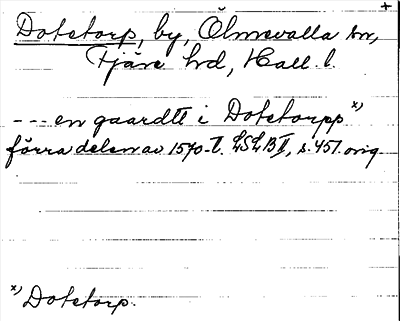 +
Dotstorp, by, Ölmevalla sn,
Fjäre hd, Hall. l.
--- en gaardtt i Dotstorpp x)
förra delen av 1570-t. LSLB II, s. 451. orig.
x) Dotstorp.